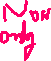 Non
only